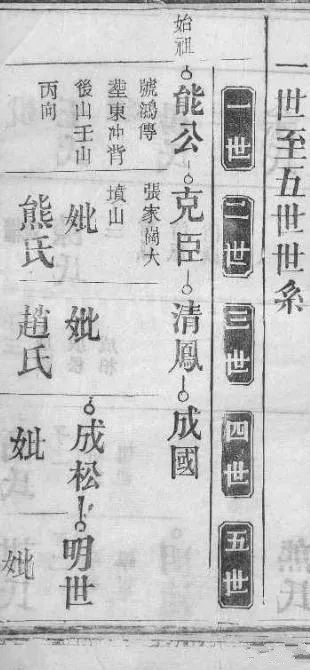 一世至五世世系
一世
二世
三世
四世
五世
始祖
能公
克臣
清鳳
成國
號鴻傳
塟東冲背
後山壬山
丙向
張家崗大
墳山
妣
熊氏
妣
趙氏
成松
明世
妣
妣